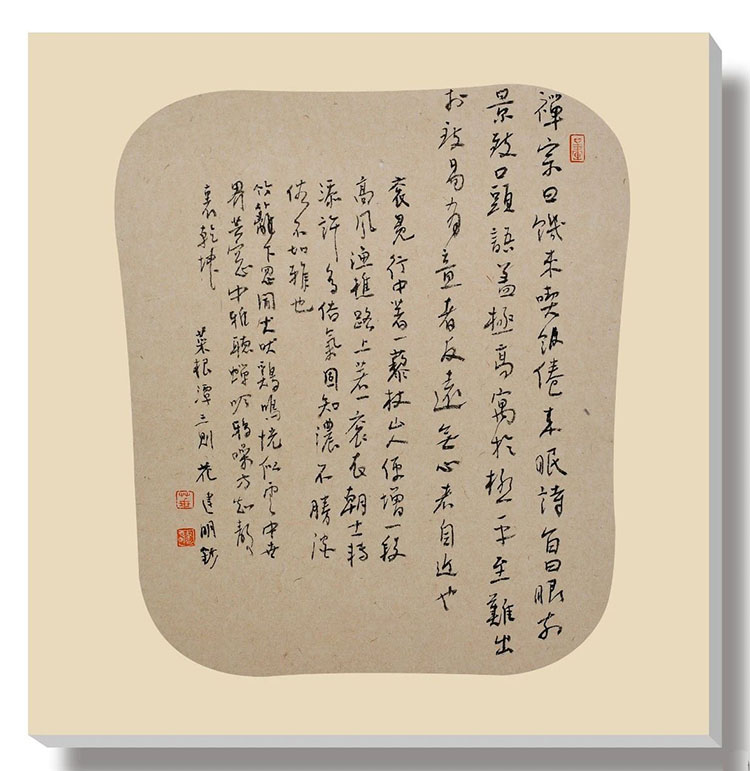 禪宗曰饑來喫飯倦來眠詩旨曰眼前
景致口頭語蓋極高寓於極平至難出
於致易有意者反遠無心者自近也
袞冕行中著一藜杖山人便增一段
高風漁樵路上著一袞衣朝士轉
添許多俗氣固知濃不勝淡
俗不如雅也
竹籬下忽聞犬吠鷄鳴恍似雲中世
界芸窓中雅聽蟬吟鴉噪方知靜
裏乾坤
菜根潭三則 花建明鈔